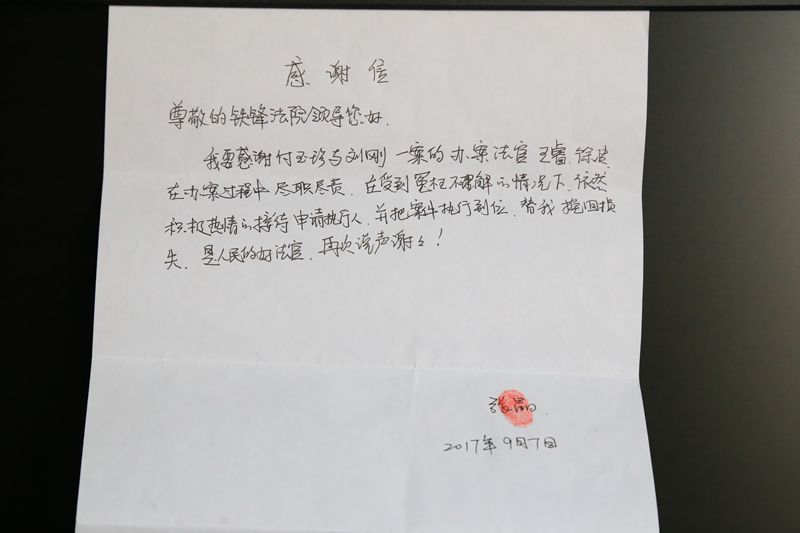 感谢信
尊敬的铁锋法院领导您好.
我要感谢付玉珍与刘刚一案的办案法官王睿.徐
在办案过程中尽职尽责.在受到冤枉不理解的情况下.依然
积极热情的接待申请执行人.并把案件执行到位.替我挽回损
失.是人民的好法官.再次说声谢谢!
张晶.
2017年9月7日